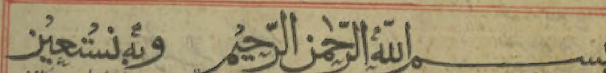 بسم الله الرحمن الرحيم وبه نستعين